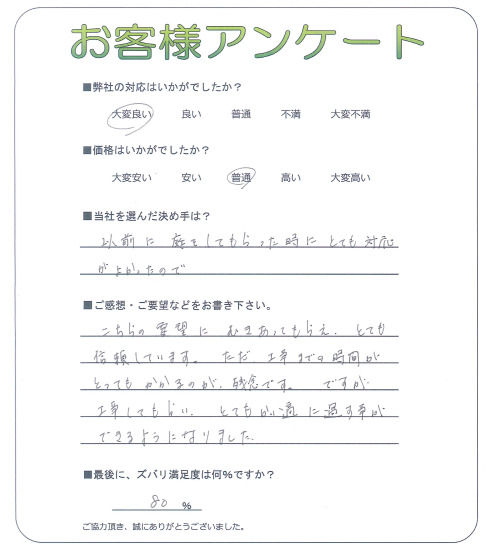 お客様アンケート
■弊社の対応はいかがでしたか?
大変良い 良い 普通 不満 大変不満
■価格はいかがでしたか?
大変安い 安い 普通 高い 大変高い
■当社を選んだ決め手は?
以前に 庭をしてもらった時に とても対応
がよかったので
■ご感想・ご要望などをお書き下さい。
こちらの要望に むきあってもらえ、とても
信頼しています。 ただ、工事までの時間が
とってもかかるのが、残念です。 ですが
工事してもらい、とてもかい適に過す事が
できるようになりました。
■最後に、ズバリ満足度は何%ですか?
80 %
ご協力頂き、誠にありがとうございました。